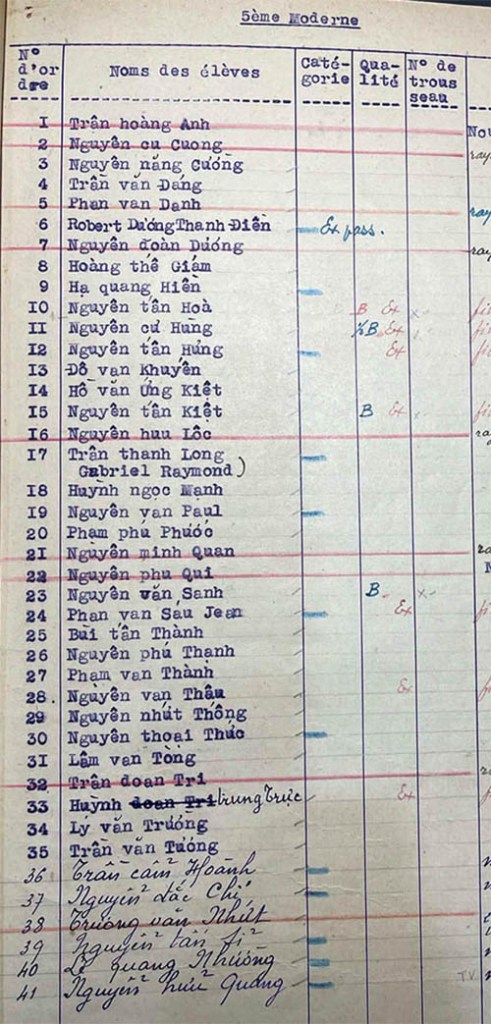 5ème Moderne
N° d'or dre Noms des élèves Caté- gorie Qua- lité N° de trous seau
I Trân hoàng Anh Nou
2 Nguyên cu Cuong ray
3 Nguyên năng Cường
4 Trần văn Dáng
5 Phan van Danh ray
6 Robert Dương Thanh Điền Ex pass.
7 Nguyên đoàn Dương ray
8 Hoàng thế Giám
9 Hạ quang Hiền
IO Nguyên tân Hoà B Ex x
II Nguyên cư Hùng B Ex
I2 Nguyên tân Hưng Ex
I3 Đỗ vạn Khuyến
I4 Hồ văn Ứng Kiệt
I5 Nguyên tân Kiệt B Ex
I6 Nguyên huu Lôc
I7 Trân thanh Long
Gabriel Raymond)
I8 Huỳnh ngọc Mạnh
I9 Nguyên van Paul
20 Phạm phú Phước
2I Nguyên minh Quan
22 Nguyên phu Qui
23 Nguyên văn Sanh B. x
24 Phan van Sáu Jean Ex
25 Bùi tấn Thành
26 Nguyên phú Thạnh
27 Phạm van Thành
28. Nguyên van Thâu Ex
29 Nguyên nhứt Thống
30 Nguyên thoại Thức
3I Lâm van Tòng
32 Trân doan Tri
33 Huỳnh doan Tri trung Trực Ex
34 Lý văn Trương
35 Trân văn Tương
36 Trần cẩm Hoành
37 Nguyễn đắc Chí
38 Trương văn Nhứt
39 Nguyễn tấn
40 Lê quang Nhường
41 Nguyễn hữu Quang